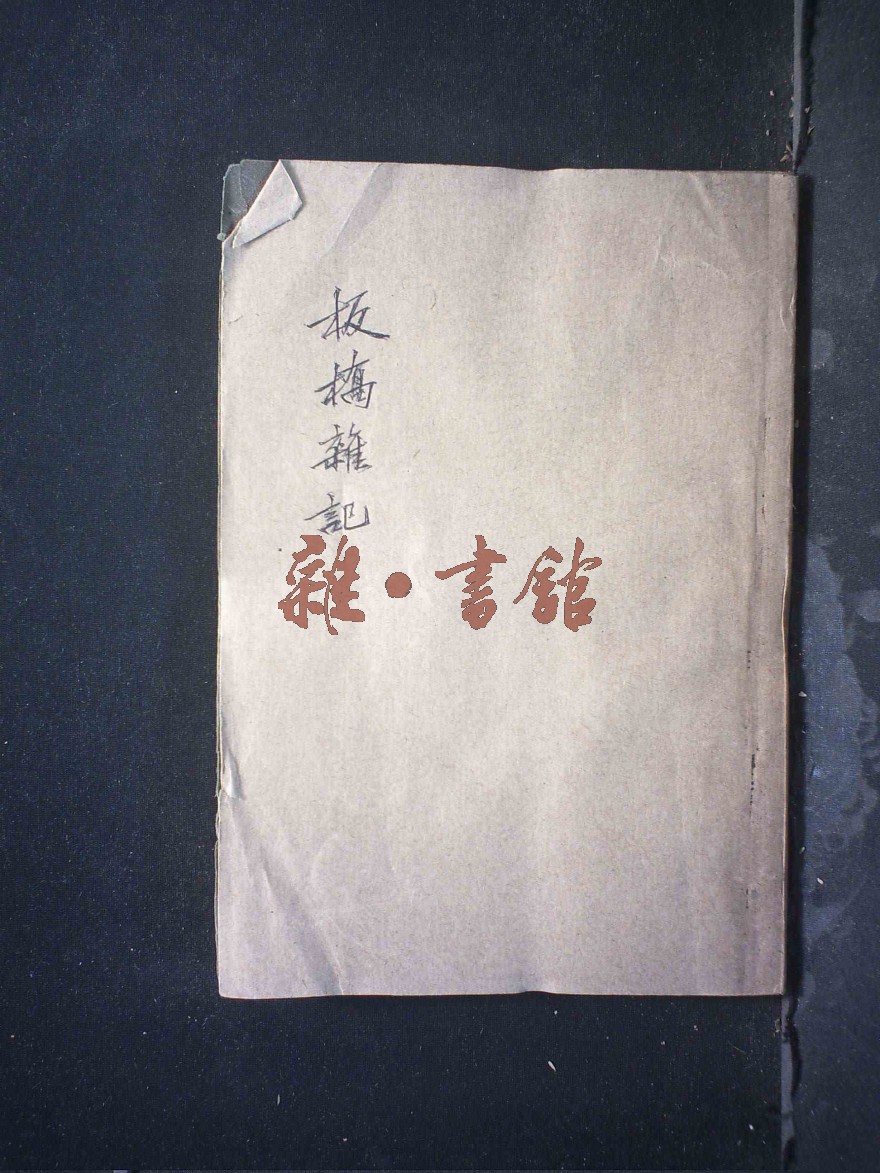 板橋雜記
雜·書館